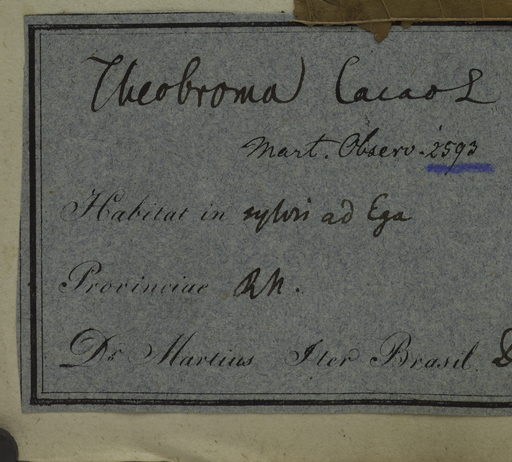 Theobroma Cacao L
Mart. Observ. 2593
Habitat in sylvis ad Ega
Provinciae R.N.
Dr Martius Iter Brasil D